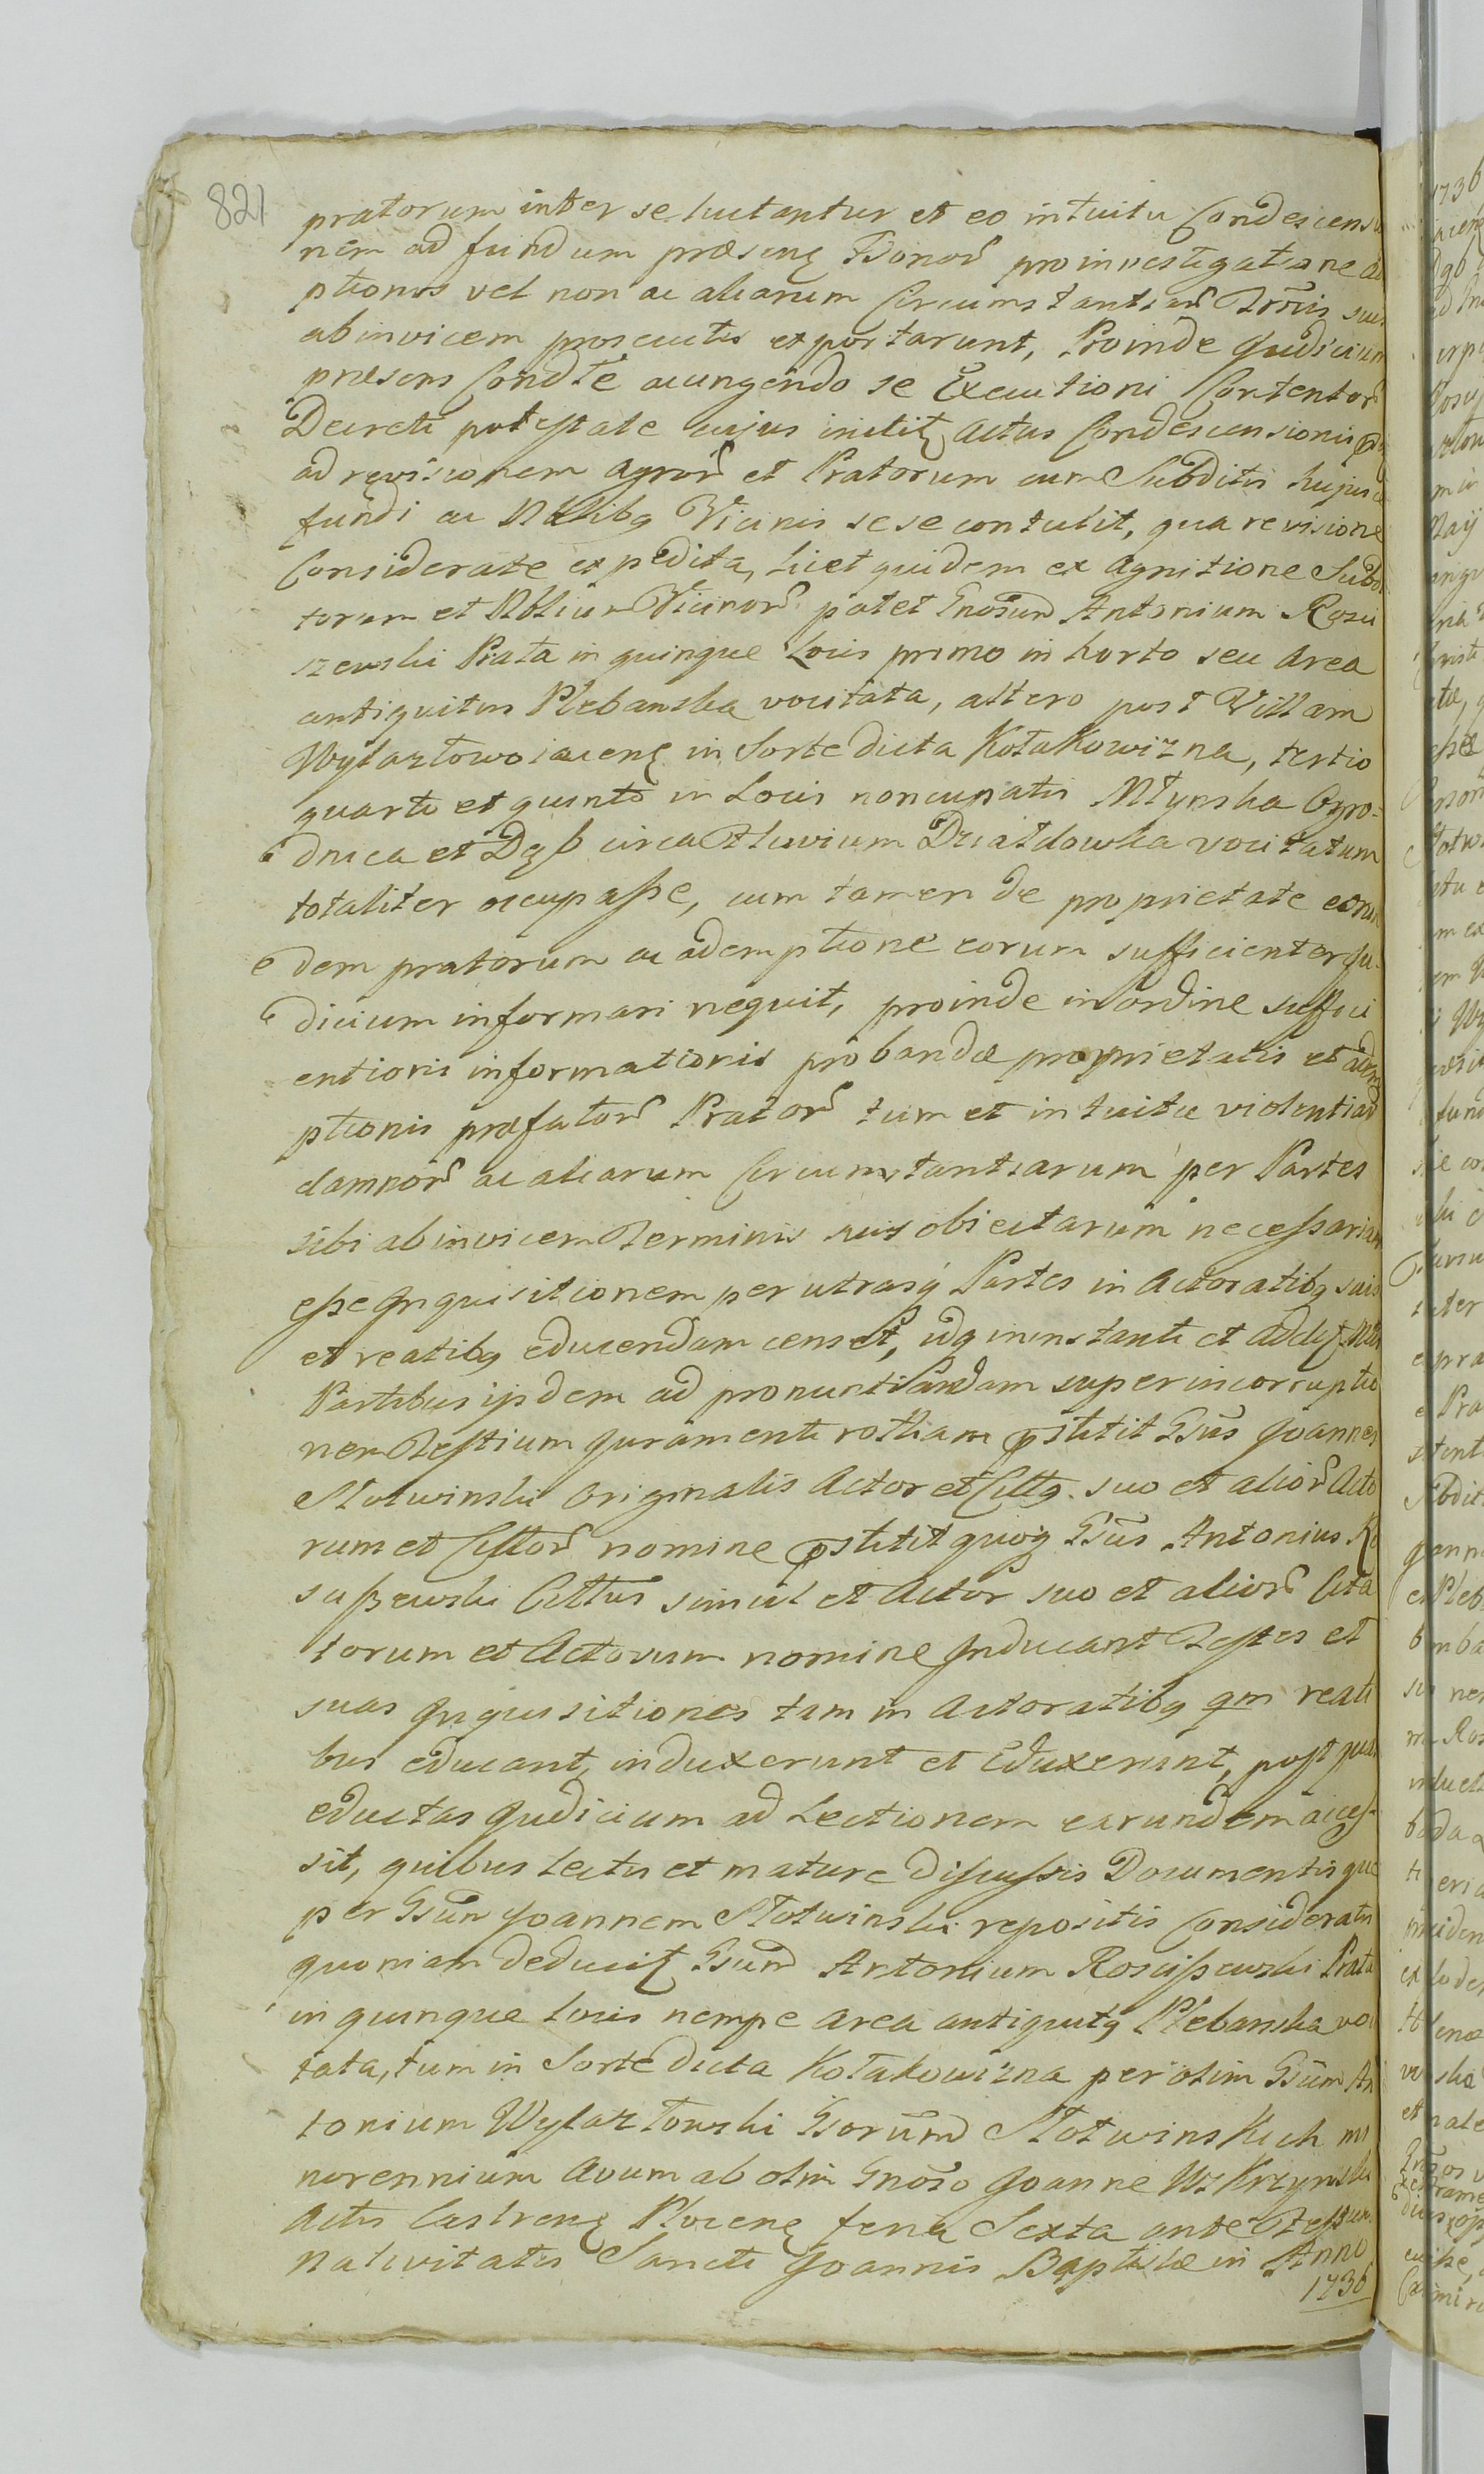 821
pratorum inter se luctantur et eo intuitu Condescensio
nem ad fundum præsenę Bonoȓ pro investigatione ad
ptionis vel non ac aliarum Circumstantiaȓ Trr̃is suis
ab invicem prosecutis exportarunt, Proinde Judicium
præsens Cond̃lẽ accingendo se Executioni Contentoȓ
Decreti potestate cujus incitit Actus Condescensionis
ad revisionem Agroȓ et Pratorum cum Subditis hujus
fundi ac Nblibq Vicinis sese contulit, qua revisione
Considerate expedita, licet quidem ex Agnitione Subdi
torum et Nblium Vicinoȓ patet Gnosum Antonium Rosci
szewski Prata in quinque Locis primo in horto seu Area
antiquitus Plebanska vocitata, altero post Villam
Wylazłowo iacenę in Sorte dicta Kołakowizna, tertio
quarto et quinto in Locis noncupatis Młynska Ogro=
dnica et Dąb circa Fluvium Działdowka vocitatum
totaliter occupasse, cum tamen de proprietate eorun
dem pratorum ac ademptione eorum sufficienter Ju-
dicium informari nequit, proinde in ordine suffici
entioris informationis probandæ proprietatis et adem
ptionis præfatoȓ Pratoȓ tum et intuitu violentiaȓ
damnoȓ ac aliarum Circumstantiarum per Partes
sibi ab invicem Terminis suis obiectarum necessariam
esse Inquisitionem per utrasq Partes in Actoratibq suis
et reatibq educendam censet, idq in instanti et addit
Partibus ijsdem ad pronuntiandam super incorruptio
nem Testium Juramenti rotham pstitit Gsus Joannes
Słotwinski Originalis Actor et Cittq. suo et alioȓ Acto
rum et Cittoȓ nomine pstitit quoq Gsus Antonius Ro
sciszewski Cittus simul et Actor suo et alioȓ Cita
torum et Actorum nomine Inducant Testes et
suas Inquisitiones tam in Actoratibq qm reati
bus educant, induxerunt et Eduxerunt, post quas
eductas Judicium ad Lectionem earundem acces-
sit, quibus lectis et mature discussis Documentisque
per Gsum Joannem Słotwinski repositis Consideratis
quoniam deducit Gsum Antonium Rosciszewski Prata
in quinque locis nempe Area antiquitq Plebanska voci
tata, tum in Sorte dicta Kołakowizna per olim Gsum An
tonium Wylazłowski Gsorum Słotwinskich mi
norennium Avum ab olim Gnoso Joanne Wzkrzynski
Actis Castrenę Plocenę feria Sexta ante Festum
Nativitatis Sancti Joannis Baptistæ in Anno
1736